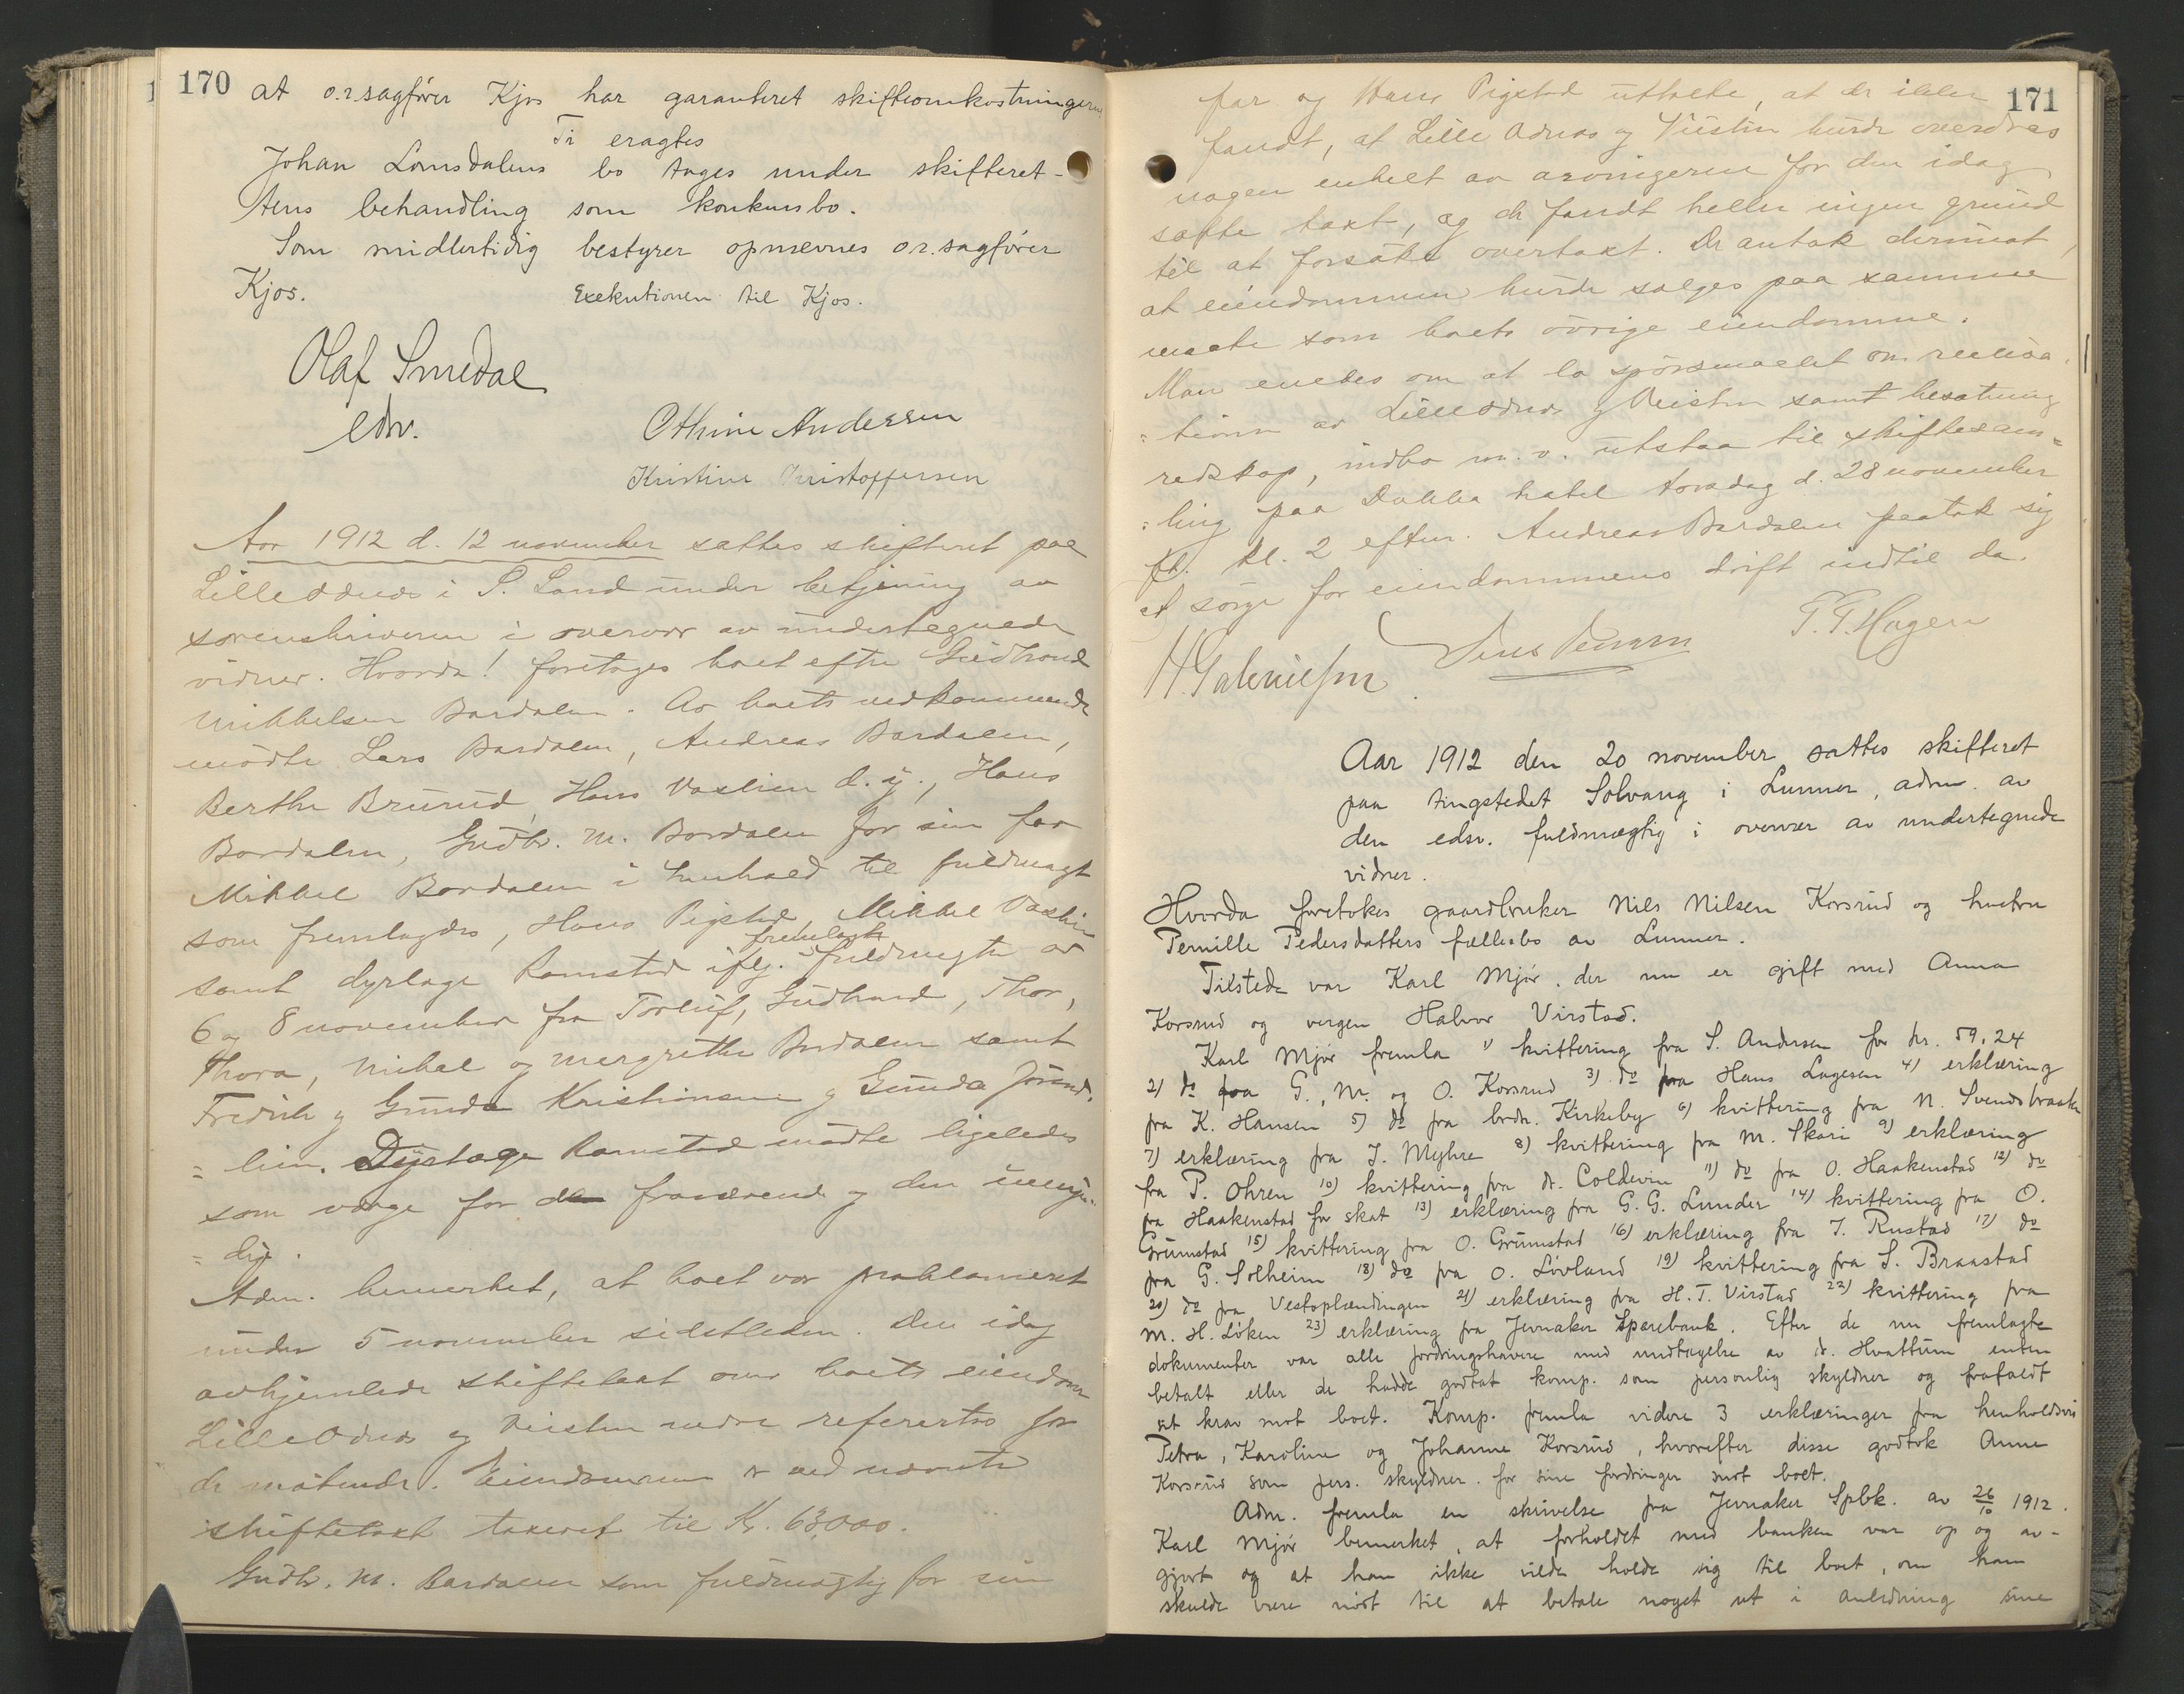 170
at o.r.sagfører Kjos har garanteret skifteomkostningerne.
Ti eragtes
Johan Lomsdalens bo tages under skifteret-
tens behandling som konkursbo.
Som midlertidig bestyrer opnævnes o.r.sagfører
Kjos. Exekutionen til Kjos.
Olaf Smedal
edsv.
Othine Andersen
Kristine Kristoffersen
Aar 1912 d. 12 november sattes skifteret paa
Lilleodnes i S. Land under betjening av
sorenskriveren i overvær av undertegnede
vidner. Hvorda! foretoges boet efter Gudbrand
Mikkelsen Bardalen. Av boets vedkommende
mødte Lars Bardalen, Andreas Bardalen,
Berthe Brurud, Hans Vaslien d. y., Hans
Bardalen, Gudbr. M. Bardalen for sin far
Mikkel Bardalen i henhold til fuldmagt
som fremlagdes, Hans Pigstad, Mikkel Vaslien
samt dyrlæge Ramstad iflg. fremlagte fuldmagter av
6 og 8 november fra Torleif, Gudbrand, Thor,
Thora, Mikal og Mergrethe Bardalen samt
Fredrik og Gunda Kristiansen og Gunda Jørand-
= lien. Dyrlæge Ramstad mødte ligeledes
som værge for de fraværende og den umyn-
= dig.
Adm. bemerket, at boet var proklameret
under 5 november sidstleden. Den idag
avhjemlede skiftetakst over boets eiendom
Lilleodnes og Veisten nedre referertes for
de møtende. Eiendommen er ved nævnte
skiftetakst taxeret til Kr. 63,000.
Gudbr. M. Bardalen som fuldmægtig for sin
171
far og Hans Pigstad uttalte, at de ikke
fandt, at Lille Odnes og Veisten burde overdras
nogen enkelt av arvingerne for den idag
satte takst, og de fandt heller ingen grund
til at forsøke overtakst. De antok derimot,
at eiendommen burde sælges paa samme
maate som boets øvrige eiendomme.
Man enedes om at la spørsmaalet om realisa-
= tionen av Lilleodnes og Veisten samt besætning
redskap, indbo m.v. utstaa til skiftesam=
= ling paa Dokka hotel torsdag d. 28 november
kl. 2 efterm. Andreas Bardalen paatok sig
at sørge for eiendommens drift indtil da.
P. T. Hagen
Aar 1912 den 20 november sattes skifteret
paa tingstedet Solvang i Lunner, adm. av
den edsv. fuldmægtig i overvær av undertegnede
vidner.
Hvorda foretokes gaardbruker Nils Nilsen Korsrud og hustru
Pernille Pedersdatters fællesbo av Lunner.
Tilstede var Karl Mjør, der nu er gift med Anna
Korsrud og vergen Halvor Virstad.
Karl Mjør fremla 1) kvittering fra S. Andersen for kr. 59,24
2) do fra G., M. og O. Korsrud 3) do fra Hans Lagesen 4) erklæring
fra K. Hansen 5) do fra brdr. Kirkeby 6) kvittering fra N. Svendsbraaten
7) erklæring fra J. Myhre 8) kvittering fra M. Skari 9) erklæring
fra P. Ohren 10) kvittering fra dr. Coldevin 11) do fra O. Haakenstad 12) do
fra Haakenstad for skat 13) erklæring fra G. G. Lunder 14) kvittering fra O.
Grimstad 15) kvittering fra O. Grimstad 16) erklæring fra J. Rustad 17) do
fra G. Solheim 18) do fra O. Løvland 19) kvittering fra S. Braastad
20) do fra Vestoplændingen 21) erklæring fra H. T. Virstad 22) kvittering fra
M. H. Løken 23) erklæring fra Jevnaker Sparebank. Efter de nu fremlagte
dokumenter var alle fordringshavere med undtagelse av dr. Hvattum enten
betalt eller de hadde godtat komp. som personlig skyldner og frafaldt
et krav mot boet. Komp. fremla videre 3 erklæringer fra henholdsvis
Petra, Karoline og Johanne Korsrud, hvorefter disse godtok Anne
Korsrud som pers. skyldner for sine fordringer mot boet.
Adm. fremla en skrivelse fra Jevnaker Spbk. av 26/10 1912.
Karl Mjør bemerket, at forholdet med banken var op og av-
gjort og at han ikke vilde holde sig til boet, om han
skulde være nødt til at betale noget ut i anledning sine